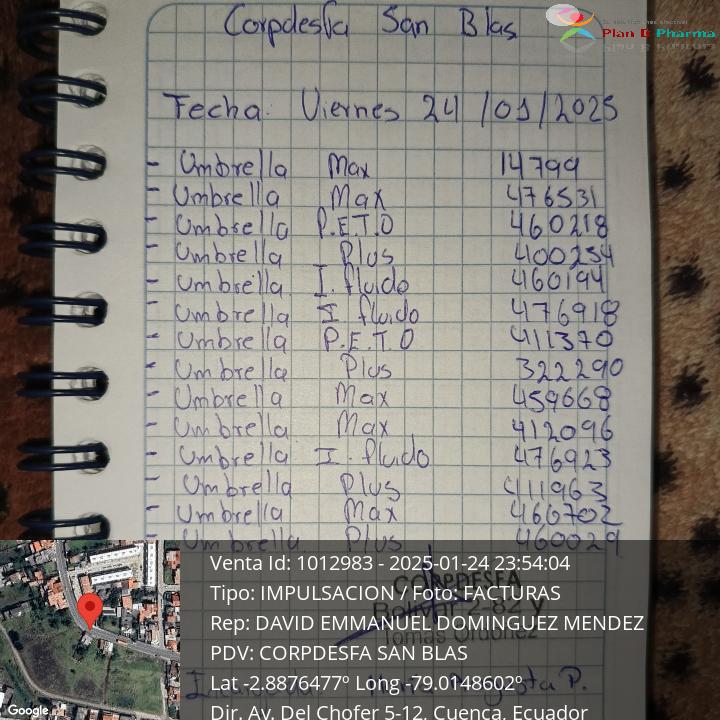 Corpdesfa San Blas
Plan B Pharma
Fecha: Viernes 24/01/2025
- Umbrella Max 14799
- Umbrella Max 476531
- Umbrella P.E.T.O 460218
- Umbrella Plus 400254
- Umbrella I. fluido 460194
- Umbrella I fluido 476918
- Umbrella P.E.T.O 411370
- Umbrella Plus 322290
- Umbrella Max 459668
- Umbrella Max 412096
- Umbrella I. fluido 476923
- Umbrella Plus 411963
- Umbrella Max 460702
- Umbrella Plus 460029
Venta Id: 1012983 - 2025-01-24 23:54:04
CORPDESFA
Tipo: IMPULSACION / Foto: FACTURAS
Bolivar 2-82 y
Rep: DAVID EMMANUEL DOMINGUEZ MENDEZ
Tomas Ordoñez
PDV: CORPDESFA SAN BLAS
Lat -2.8876477º Long -79.0148602º
P.
Dir. Av. Del Chofer 5-12, Cuenca, Ecuador
Google